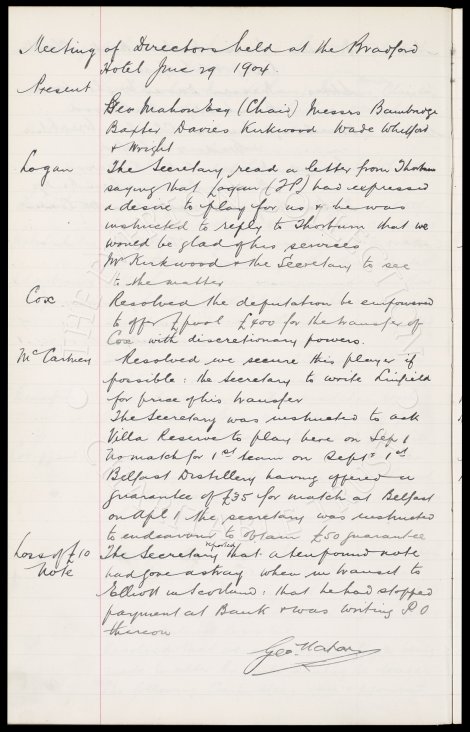 Meeting of Directors held at the Bradford
Hotel June 29 1904.
Present
Geo Mahon Esq (Chair) Messrs Bainbridge
Baxter Davies Kirkwood Wade Whitford
& Wright
Logan The Secretary read a letter from Thorburn
saying that Logan (TP) had expressed
a desire to play for us & he was
instructed to reply to Thorburn that we
would be glad of his services
Mr Kirkwood & the Secretary to see
to the matter
Cox Resolved the deputation be empowered
to offer L'pool £400 for the transfer of
Cox with discretionary powers.
McCartney Resolved we secure this player if
possible: the Secretary to write Linfield
for price of his transfer
The Secretary was instructed to ask
Villa Reserve to play here on Sep 1
No match for 1st team on Sept 1st
Belfast Distillery having offered a
guarantee of £35 for match at Belfast
on Apl 1 the secretary was instructed
to endeavour to obtain £50 guarantee
Loss of £10 Note The Secretary reported that a ten pound note
had gone astray when in transit to
Elliott in Scotland: that he had stopped
payment at Bank & was writing P O
thereon
Geo. Mahon